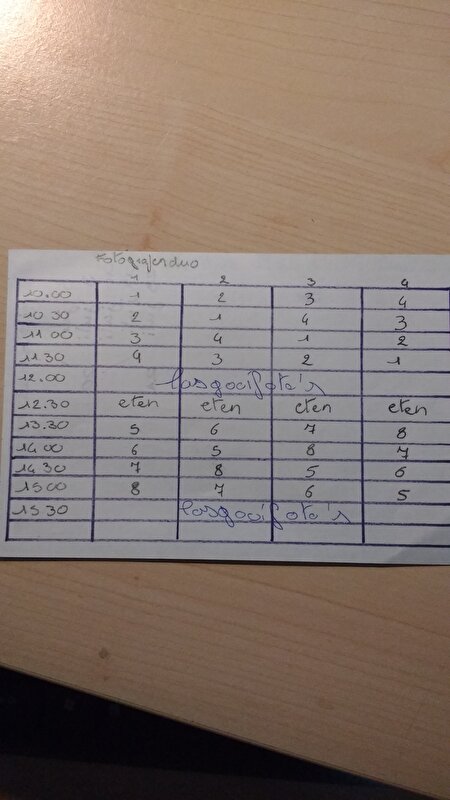 Fotograferduo
1 2 3 4
10.00 1 2 3 4
10 30 2 1 4 3
11 00 3 4 1 2
11.30 4 3 2 1
12.00 losgooifoto's
12.30 eten eten eten eten
13.30 5 6 7 8
14.00 6 5 8 7
14 30 7 8 5 6
15 00 8 7 6 5
15 30 losgooifoto's